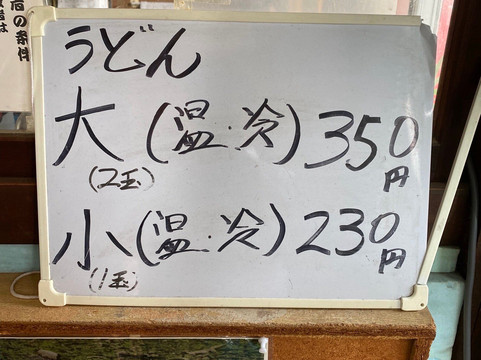 うどん
大(温・冷)350円
(2玉)
小(温・冷)230円
(1玉)
の条件